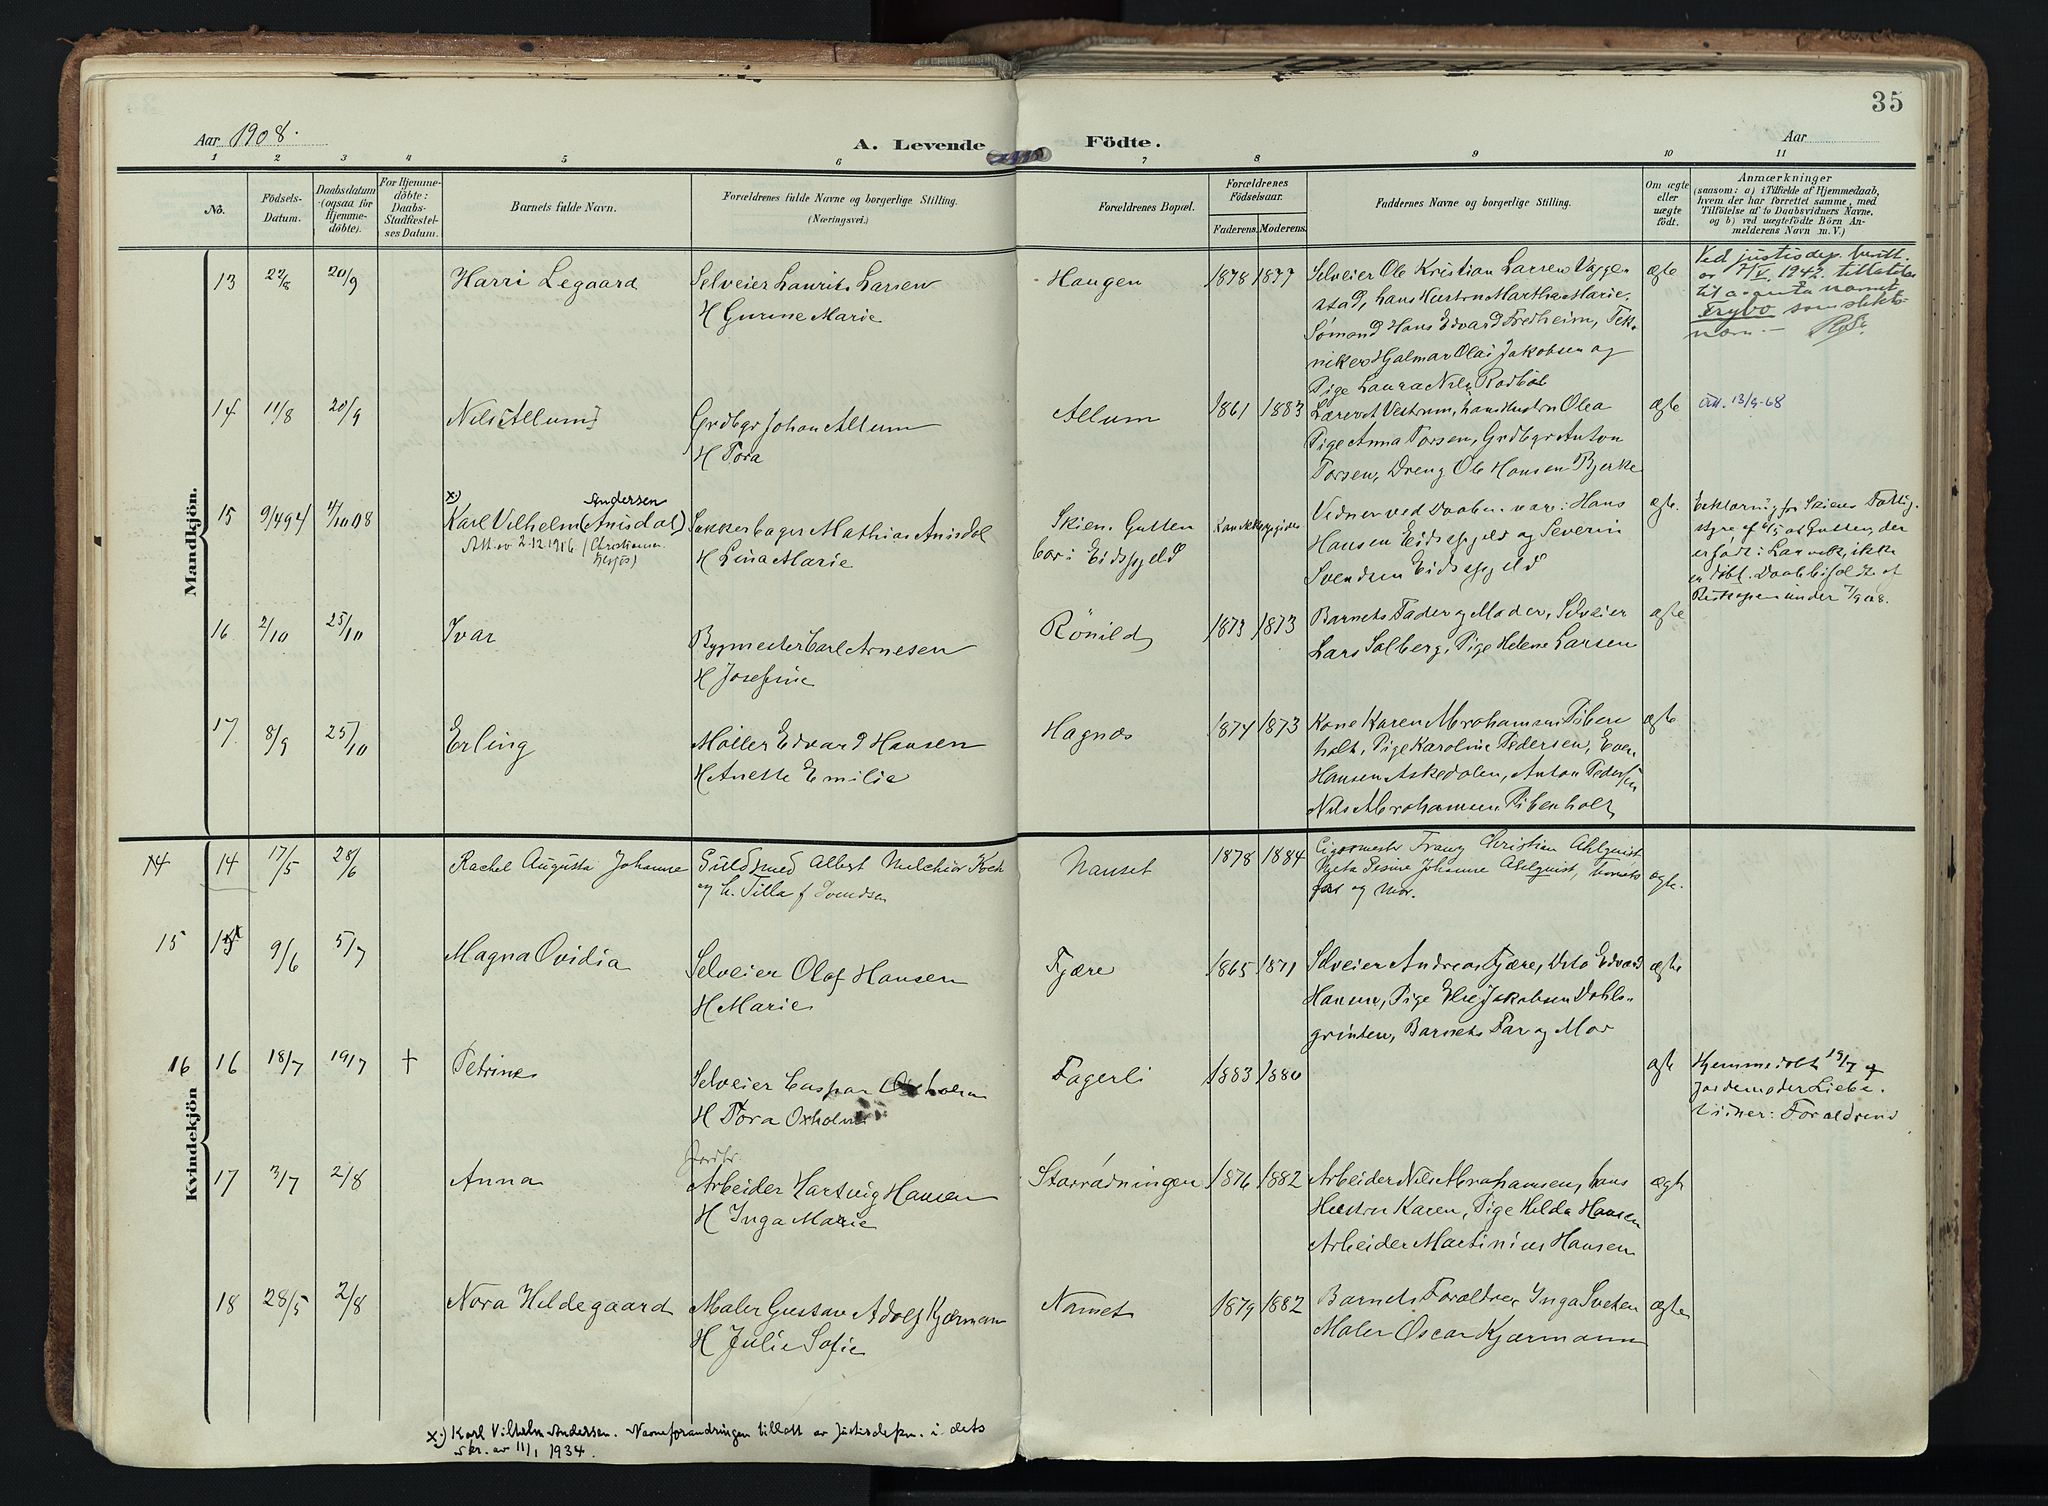 35
Aar 1908.
A. Levende Födte.
Aar
1 2 3 4 5 6 7 8 9 10 11
No.
Födsels-
Datum.
Daabsdatum
(ogsaa for
Hjemme-
döbte).
For Hjemme-
döbte:
Daabs-
Stadfæstel-
ses Datum.
Barnets fulde Navn.
Forældrenes fulde Navne og borgerlige Stilling.
(Næringsvei.)
Forældrenes Bopæl.
Forældrenes
Födselsaar.
Faderens. Moderens.
Faddernes Navne og borgerlige Stilling.
Om ægte
eller
uægte
födt.
Anmærkninger
(saasom: a) i Tilfælde af Hjemmedaab,
hvem der har forrettet samme, med
Tilföielse af to Daabsvidners Navne,
og b) ved uægtefödte Börn An-
melderens Navn m. V.)
Mandkjön.
13 22/8 20/9 Harri Legaard
Selveier Laurits Larsen
H Gurine Marie
Haugen 1878 1877
Selveier Ole Kristian Larsen Vagge-
stad, hans Hustru Martha Marie,
Sømand Hans Edvard Fredheim, Tek-
niker Hjalmar Olai Jakobsen og
Pige Laura Nils. Rødbøl
ægte
Ved justisdep. bevilt.
av 7/V. 1942 tillatelse
til a anta navnet
Frybo som slekts-
navn.
14 11/8 20/9 Nils [Allum]
Grdbgr Johan Allum
H Tora
Allum 1861 1883
Lærer A Vestrum, hans Hustru Olea
Pige Anna Torsen, Grdbgr Anton
Torsen, Dreng Ole Hansen Bjerke
ægte
Att. 13/9-68
15 9/4 94 4/10 08
x) Andersen
Karl Vilhelm (Anisdal)
Att. av 2.12.1916. (Christianne
Sukkerbager Mathias Anisdal
H Lina Marie
Skien. Gutten
bor i Eidsfjeld
Kan ikke opgives
Vidner ved Daaben var: Hans
Hansen Eidsfjeld og Severin
Svendsen Eidsfjeld
ægte.
Erklæring fra Skiens Fattig-
styre af 6/5 at Gutten, der
er født i Larvik, ikke
er døbt. Daab bifaldt af
Biskopen under 7/9 08.
16 2/10 25/10 Ivar
Bygmester Carl Arnesen
H Josefine
Rönild 1873 1873
Barnets Fader og Moder, Selveier
Lars Solberg, Pige Helene Larsen
ægte
17 8/9 25/10 Erling
Møller Edvard Hansen
H Anette Emilie
Hagnæs 1874 1873
Kone Karen Abrahamsen Piben
holt, Pige Karoline Pedersen, Even
Hansen Askedalen, Anton Pedersen
Nils Abrahamsen Pibenholt
ægte
Kvindekjön
14 14 17/5 28/6 Rachel Augusta Johanne
Guldsmed Albert Melchior Koch
og h. Tilla f Svendsen
Nanset 1878 1884
Cigarmester Franz Christian Ahlquist
Johanne Ahlquist, barnets
far og mor.
ægte.
15 15 9/6 5/7 Magna Ovidia
Selveier Olaf Hansen
H Marie
Fjære 1865 1871
Selveier Andreas Fjære, Dito Edvard
Hansen, Pige Else Jakobsen Dahls-
grinten, Barnets Far og Mor
ægte
16 16 18/7 19/7 † Petrine
Selveier Caspar Oxholm
H Tora Oxholm
Fagerli 1883 1880
ægte
Hjemmedøbt 19/7 af
Jordemoder Liebe.
Vidner: Forældrene
17 3/7 2/8 Anna
Jordbr.
Arbeider Hartvig Hansen
H Inga Marie
Storrødningen 1876 1882
Arbeider Nils Abrahamsen, hans
Hustru Karen, Pige Hilda Hansen
Arbeider Martinius Hansen
ægte
18 28/5 2/8 Nora Hildegaard
Maler Gustav Adolf Kjærmann
H Julie Sofie
Nanset 1879 1882
Barnets Forældre, Inga Sveten
Maler Oscar Kjærmann
ægte
x) Karl Vilhelm Andersen. Navneforandringen tillatt av Justisdepn. i dets
skr. av 11/1 1934.